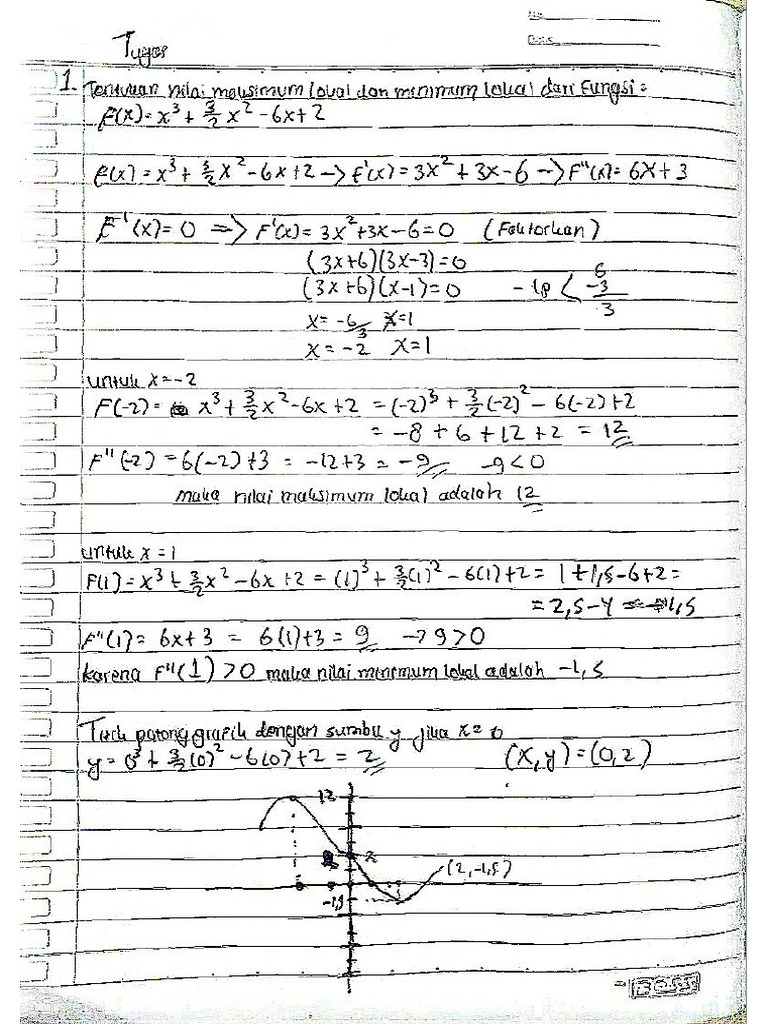 No.
Date.
Tugas
1. Tentukan nilai maksimum lokal dan minimum lokal dari Fungsi =
F(x) = x³ + 3/2 x² - 6x + 2
F(x) = x³ + 3/2 x² - 6x + 2 -> F'(x) = 3x² + 3x - 6 -> F''(x) = 6x + 3
F'(x) = 0 => F'(x) = 3x² + 3x - 6 = 0 (Faktorkan)
(3x+6)(3x-3) = 0
(3x+6)(x-1) = 0 -18 < 6 -3 / 3
x = -6/3 x = 1
x = -2 x = 1
untuk x = -2
F(-2) = x³ + 3/2 x² - 6x + 2 = (-2)³ + 3/2 (-2)² - 6(-2) + 2
= -8 + 6 + 12 + 2 = 12
F''(-2) = 6(-2) + 3 = -12 + 3 = -9 -9 < 0
maka nilai maksimum lokal adalah 12
untuk x = 1
F(1) = x³ + 3/2 x² - 6x + 2 = (1)³ + 3/2 (1)² - 6(1) + 2 = 1 + 1,5 - 6 + 2 =
= 2,5 - 4 = -1,5
F''(1) = 6x + 3 = 6(1) + 3 = 9 -> 9 > 0
karena F''(1) > 0 maka nilai minimum lokal adalah -1,5
Titik potong grafik dengan sumbu y jika x = 0
y = 0³ + 3/2 (0)² - 6(0) + 2 = 2 (x, y) = (0, 2)
12
2
(2, -1,5)
-1,5